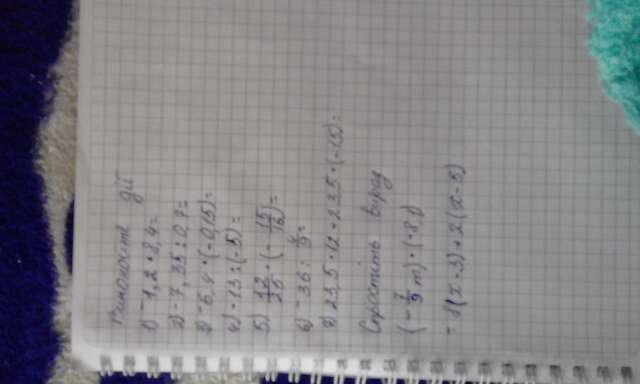 Виконайте дії
1) -1,2 · 8,4=
2) -7,35 : 0,7=
3) -6,4 · (-0,15)=
4) -13 : (-5) =
5) 12/25 · (- 15/16)=
6) -36 : 4/9=
7) 23,5 · 12 + 23,5 · (-15)=
Спростіть вираз
(- 7/9 m) · (-8,1)
- 8(x-3)+2(x-5)